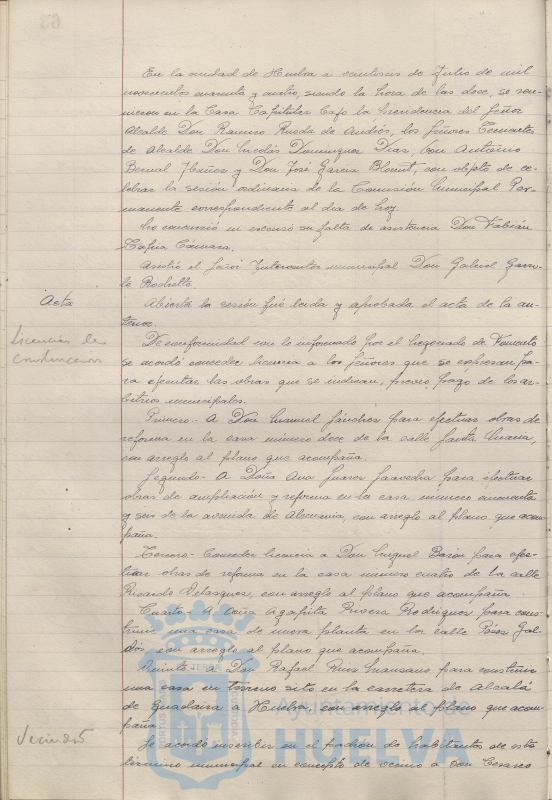 En la ciudad de Huelva a veintiseis de Julio de mil
novecientos cuarenta y cuatro, siendo la hora de las doce, se reu-
nieron en la Casa Capitular bajo la presidencia del Señor
Alcalde Don Ramiro Rueda de Andrés, los Señores Tenientes
de Alcalde Don Nicolás Dominguez Diaz, Don Antonio
Bernal Ibáñez y Don José Garcia Blount, con objeto de ce-
lebrar la sesión ordinaria de la Comisión Municipal Per-
manente correspondiente al dia de hoy.
No concurrió ni excusó su falta de asistencia Don Fabián
Tapia Cámara.
Asistió el Señor Interventor municipal Don Gabriel
Acta
Abierta la sesión fué leida y aprobada el acta de la an-
terior.
Licencias de
construccion
De conformidad con lo informado por el Negociado de Fomento
se acordó conceder licencia a los Señores que se expresan pa-
ra ejecutar las obras que se indican, previo pago de los ar-
bitrios municipales.
Primero.- A Don Manuel Sánchez para efectuar obras de
reforma en la casa número doce de la calle Santa Maria,
con arreglo al plano que acompaña.
Segundo- A Doña Ana Suarez Saavedra para efectuar
obras de ampliación y reforma en la casa número cincuenta
y seis de la avenida de Alemania, con arreglo al plano que acom-
paña.
Tercero- Conceder licencia a Don Miguel Barón para efec-
tuar obras de reforma en la casa número cuatro de la calle
Ricardo Velazquez, con arreglo al plano que acompaña.
Cuarto- A Doña Agapita Rivera Rodriguez para cons-
truir una casa de nueva planta en la calle Pérez Gal-
dós, con arreglo al plano que acompaña.
Quinto- A Don Rafael Ruiz Manzano para construir
una casa en terreno sito en la carretera de Alcalá
de Guadaira a Huelva, con arreglo al plano que acom-
paña.
Ayuntamiento de
HUELVA
Se acordó inscribir en el padrón de habitantes de este
término municipal en concepto de vecino a Don Cesareo